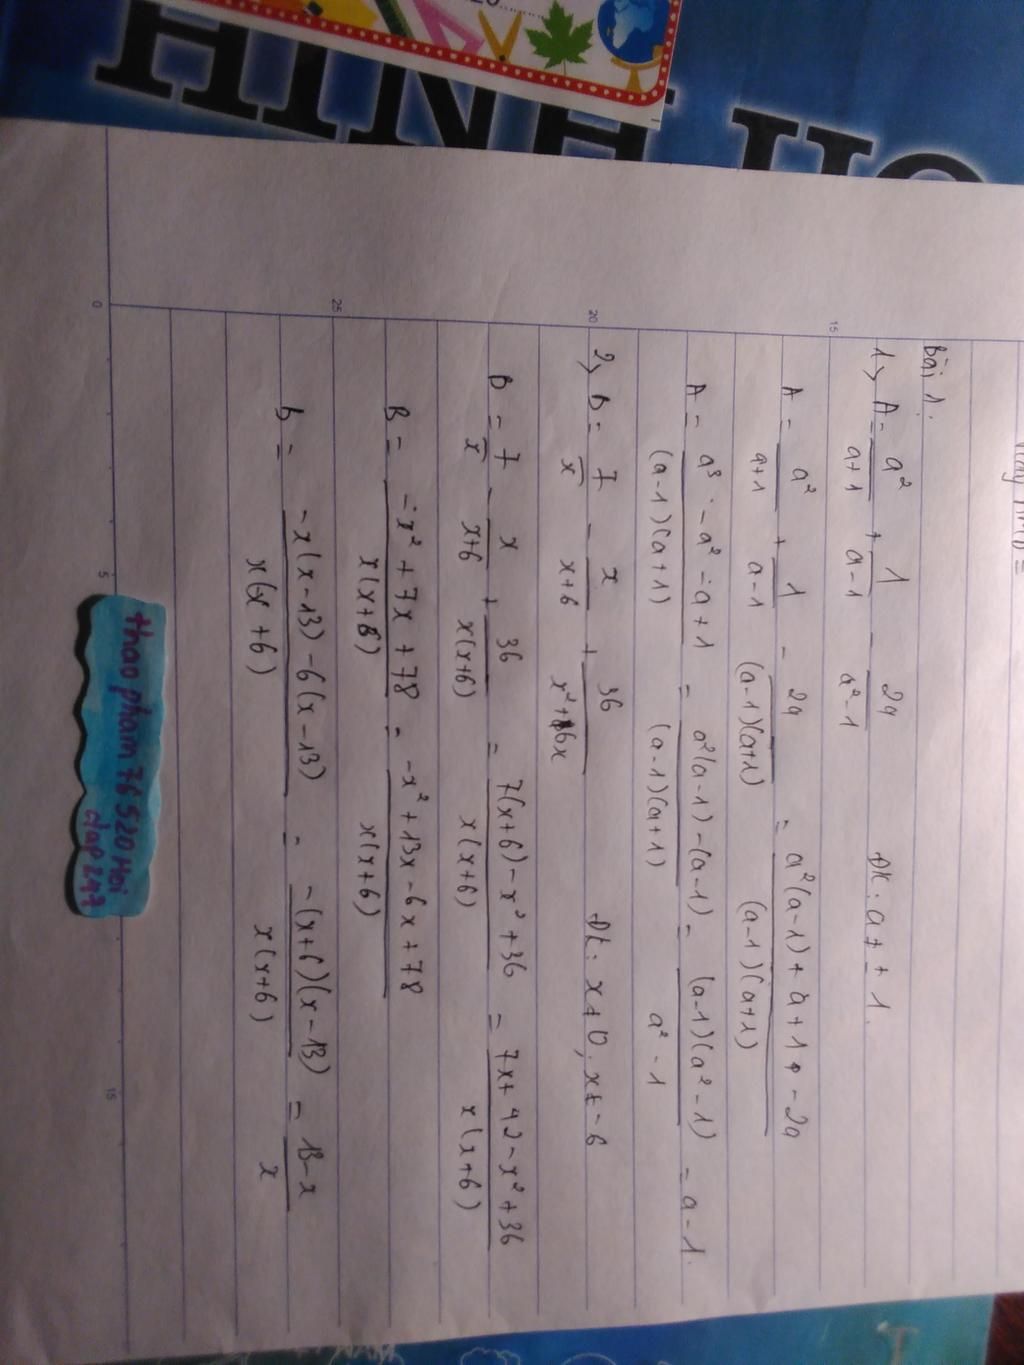 HÌNH HỌC
Bài 1:
1> A = a²/(a+1) + 1/(a-1) - 2a/(a²-1) ĐK: a ≠ ± 1.
A = a²/(a+1) + 1/(a-1) - 2a/((a-1)(a+1)) = (a²(a-1) + a+1 - 2a)/((a-1)(a+1))
A = (a³ - a² - a + 1)/((a-1)(a+1)) = (a²(a-1) - (a-1))/((a-1)(a+1)) = ((a-1)(a²-1))/(a²-1) = a-1.
2> B = 7/x - x/(x+6) + 36/(x²+6x) Đk: x ≠ 0; x ≠ -6
B = 7/x - x/(x+6) + 36/(x(x+6)) = (7(x+6) - x² + 36)/(x(x+6)) = (7x + 42 - x² + 36)/(x(x+6))
B = (-x² + 7x + 78)/(x(x+6)) = (-x² + 13x - 6x + 78)/(x(x+6))
B = (-x(x-13) - 6(x-13))/(x(x+6)) = (-(x+6)(x-13))/(x(x+6)) = (13-x)/x
thao pham 76520 Hoi
dap 247
15
20
25
0
5
15